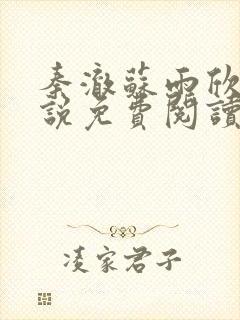 秦澈蘇雨欣
說免費閱讀
凌家君子